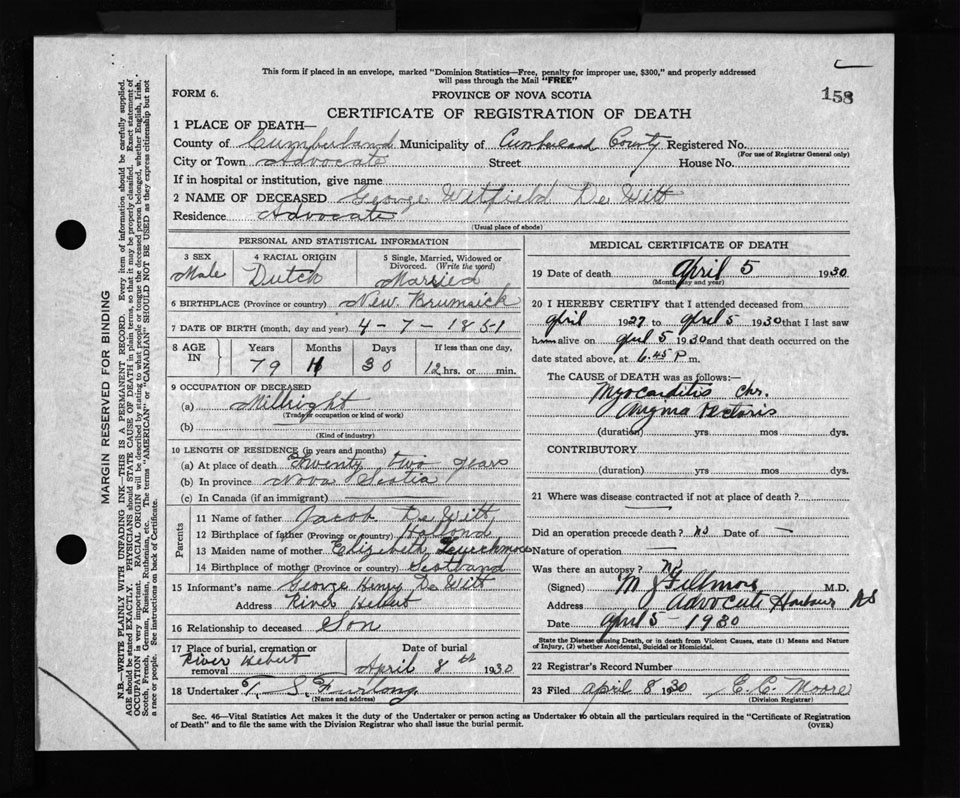 This form if placed in an envelope, marked "Dominion Statistics—Free, penalty for improper use, $300," and properly addressed
will pass through the Mail "FREE"
FORM 6.
PROVINCE OF NOVA SCOTIA
158
CERTIFICATE OF REGISTRATION OF DEATH
1 PLACE OF DEATH—
County of Cumberland Municipality of Cumberland County Registered No.
(For use of Registrar General only)
City or Town Advocate Street House No.
If in hospital or institution, give name
2 NAME OF DECEASED George Witfield De Witt
Residence Advocate
(Usual place of abode)
PERSONAL AND STATISTICAL INFORMATION
3 SEX 4 RACIAL ORIGIN 5 Single, Married, Widowed or
Divorced. (Write the word)
Male Dutch Married
6 BIRTHPLACE (Province or country) New Brunsick
7 DATE OF BIRTH (month, day and year) 4-7-1851
8 AGE IN Years Months Days If less than one day,
79 11 30 12 hrs. or min.
9 OCCUPATION OF DECEASED
(a) Millright
(Trade or occupation or kind of work)
(b)
(Kind of industry)
10 LENGTH OF RESIDENCE (in years and months)
(a) At place of death Twenty two years
(b) In province Nova Scotia
(c) In Canada (if an immigrant)
Parents
11 Name of father Jacob De Witt
12 Birthplace of father (Province or country) Hollond
13 Maiden name of mother Elizebeth
14 Birthplace of mother (Province or country) Scotland
15 Informant's name George Henry De Witt
Address River Hebert
16 Relationship to deceased Son
17 Place of burial, cremation or
removal River Hebert
Date of burial
April 8th 1930
18 Undertaker T. S. Furlong
(Name and address)
MEDICAL CERTIFICATE OF DEATH
19 Date of death April 5 1930
(Month, day and year)
20 I HEREBY CERTIFY that I attended deceased from
April 1927 to April 5 1930 that I last saw
him alive on April 5 1930 and that death occurred on the
date stated above, at 6.45 P m.
The CAUSE OF DEATH was as follows:—
Myocarditis chr.
Angma Pectoris
(duration) yrs mos dys.
CONTRIBUTORY
(duration) yrs mos dys.
21 Where was disease contracted if not at place of death?
Did an operation precede death? no Date of —
Nature of operation —
Was there an autopsy? no
(Signed) M J Fillmore M.D.
Address Advocate Harbour NS
Date April 5-1930
State the Disease causing Death, or in death from Violent Causes, state (1) Means and Nature
of Injury, (2) whether Accidental, Suicidal or Homicidal.
22 Registrar's Record Number
23 Filed April 8 1930 E. C. Moore
(Division Registrar)
Sec. 46—Vital Statistics Act makes it the duty of the Undertaker or person acting as Undertaker to obtain all the particulars required in the "Certificate of Registration
of Death" and to file the same with the Division Registrar who shall issue the burial permit.
(OVER)
MARGIN RESERVED FOR BINDING
N.B.—WRITE PLAINLY WITH UNFADING INK—THIS IS A PERMANENT RECORD. Every item of information should be carefully supplied.
AGE should be stated EXACTLY. PHYSICIANS should STATE CAUSE OF DEATH in plain terms, so that it may be properly classified. Exact statement of
OCCUPATION is very important. RACIAL ORIGIN will be described by stating to what people or tongue the deceased person belonged, whether English, Irish,
Scotch, French, German, Russian, Ruthenian, etc. The terms "AMERICAN" or "CANADIAN" SHOULD NOT BE USED as they express citizenship but not
a race or people. See instructions on back of Certificate.